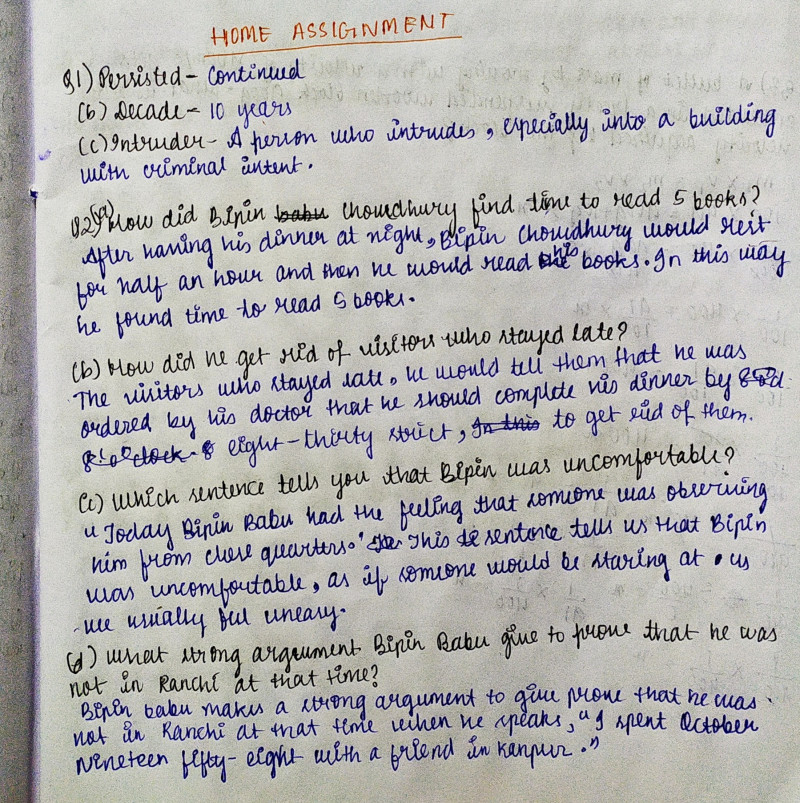 HOME ASSIGNMENT
Q1) Persisted - Continued
(b) Decade - 10 years
(c) Intruder - A person who intrudes, especially into a building
with criminal intent.
Q2(a) How did Bipin babu Choudhury find time to read 5 books?
After having his dinner at night, Bipin Choudhury would rest
for half an hour and then he would read his books. In this way
he found time to read 5 books.
(b) How did he get rid of visitors who stayed late?
The visitors who stayed late, he would tell them that he was
ordered by his doctor that he should complete his dinner by
8' o'clock. eight-thirty strict, In this to get rid of them.
(c) Which sentence tells you that Bipin was uncomfortable?
"Today Bipin Babu had the feeling that someone was observing
him from close quarters." This sentence tells us that Bipin
was uncomfortable, as if someone would be staring at us
we usually feel uneasy.
(d) What strong arguement Bipin Babu give to prove that he was
not in Ranchi at that time?
Bipin babu makes a strong argument to give prove that he was
not in Ranchi at that time when he speaks, "I spent October
Nineteen fifty-eight with a friend in Kanpur."